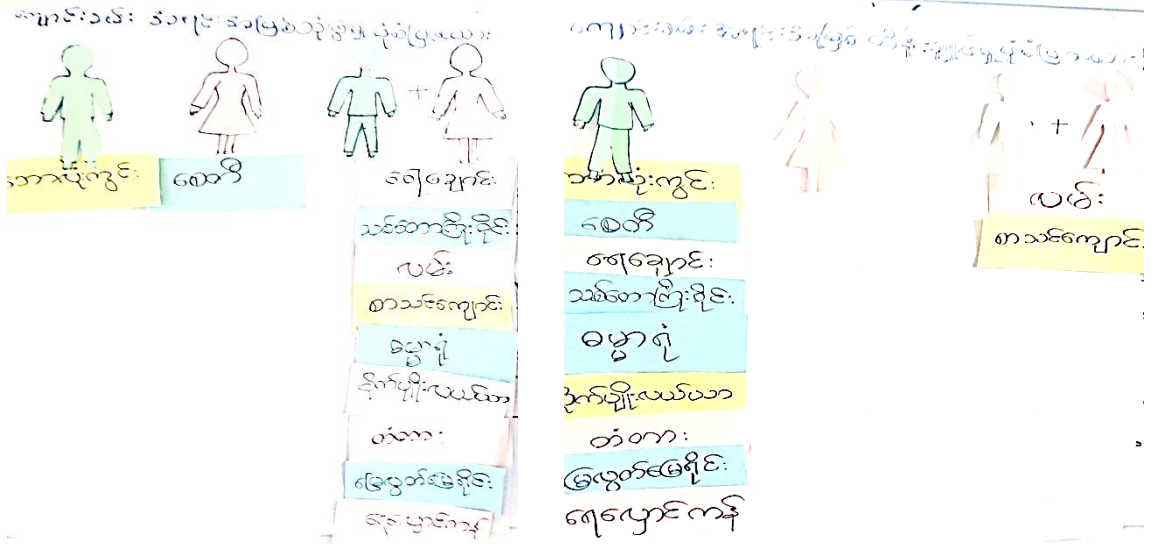 ကျောင်းခမ်း အရင်းအမြစ်သုံးစွဲမှု ပုံစံပြဇယား
ဘောလုံးကွင်း
စေတီ
ရေချောင်း
သစ်တောကြိုးဝိုင်း
လမ်း
စာသင်ကျောင်း
ဓမ္မာရုံ
စိုက်ပျိုးလယ်ယာ
တံတား
မြေလွတ်မြေရိုင်း
ရေလှောင်ကန်
အရင်းအမြစ် ထိန်းချုပ်မှုပုံစံပြဇယား
ဘောလုံးကွင်း
စေတီ
ရေချောင်း
သစ်တောကြိုးဝိုင်း
ဓမ္မာရုံ
စိုက်ပျိုးလယ်ယာ
တံတား
မြေလွတ်မြေရိုင်း
ရေလှောင်ကန်
လမ်း
စာသင်ကျောင်း